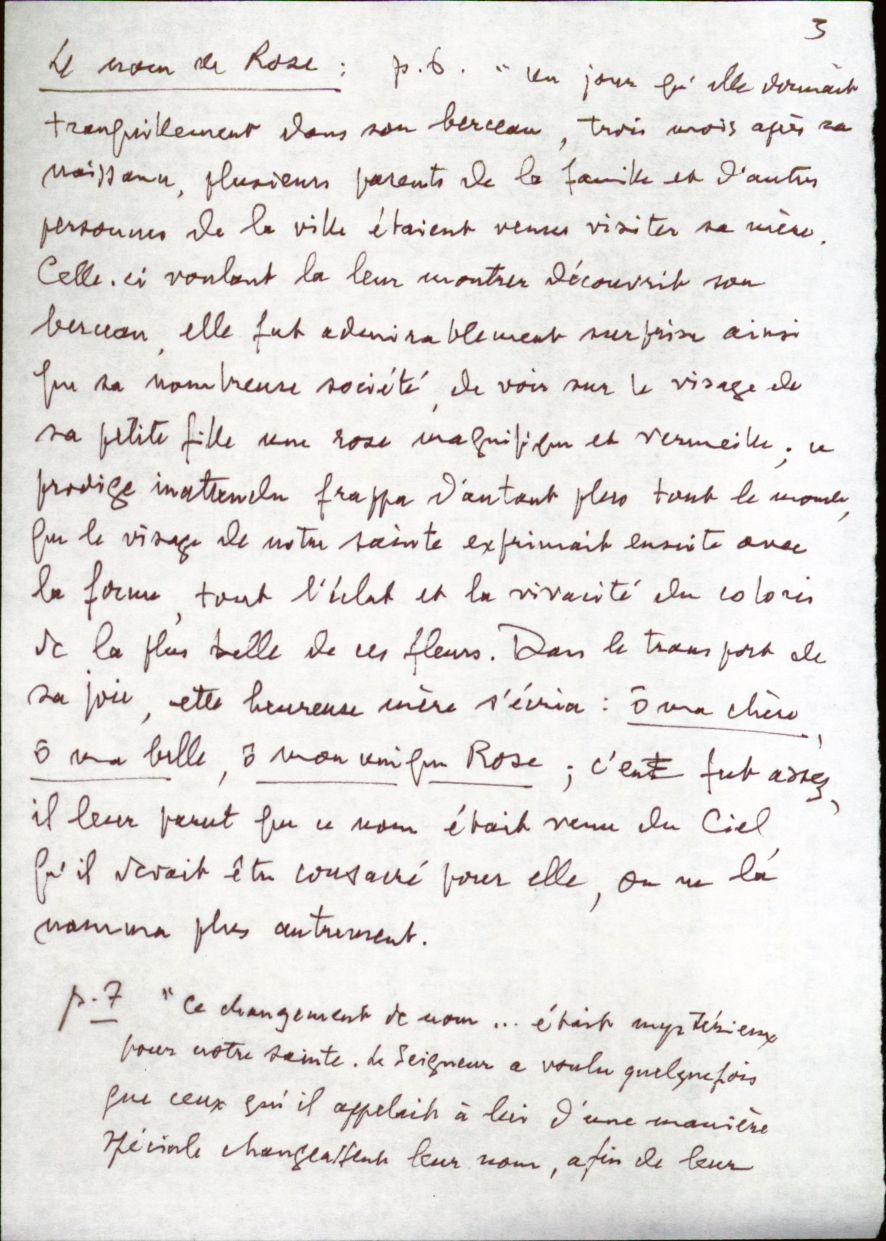 3
Le nom de Rose : p.6. " un jour qu'elle dormait
tranquillement dans son berceau, trois mois après sa
naissance, plusieurs parents de la famille et d'autres
personnes de la ville étaient venus visiter sa mère.
Celle-ci voulant la leur montrer découvrit son
berceau, elle fut admirablement surprise ainsi
que sa nombreuse société, de voir sur le visage de
sa petite fille une rose magnifique et vermeille ; ce
prodige inattendu frappa d'autant plus tout le monde,
que le visage de notre sainte exprimait ensuite avec
la forme, tout l'éclat et la vivacité du coloris
de la plus belle de ces fleurs. Dans le transport de
sa joie, cette heureuse mère s'écria : ô ma chère,
ô ma belle, ô mon unique Rose ; c'en fut assez,
il leur parut que ce nom était venu du Ciel
qu'il devait être consacré pour elle, on ne la
nomma plus autrement.
p.7 " Ce changement de nom ... était mystérieux
pour notre sainte. Le Seigneur a voulu quelquefois
que ceux qu'il appelait à lui d'une manière
spéciale changeassent leur nom, afin de leur